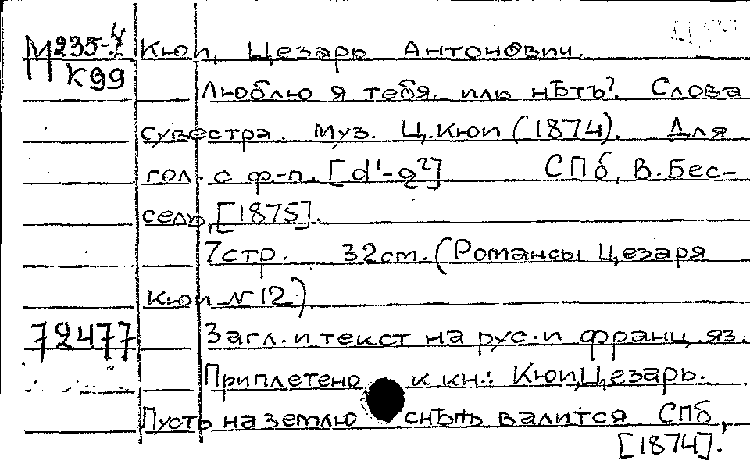 М 235-4 Кюи, Цезарь Антонович.
К99
Люблю я тебя иль нѣтъ? Слова
сувестра. муз. Ц. Кюи (1874). Для
гол. с ф-п. [d¹-g²] СПб, В. Бес-
сель, [1875].
7 стр. 32 см. (Романсы Цезаря
Кюи № 12)
72477 Загл. и текст на рус. и франц. яз.
Приплетено к кн.: Кюи, Цезарь.
Пусть на землю снѣгъ валится СПб,
[1874].